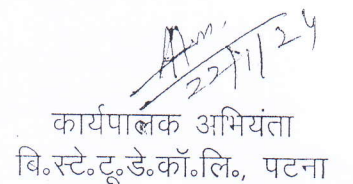 22/11/24
कार्यपालक अभियंता
बि०स्टे०टू०डे०कॉ०लि०, पटना